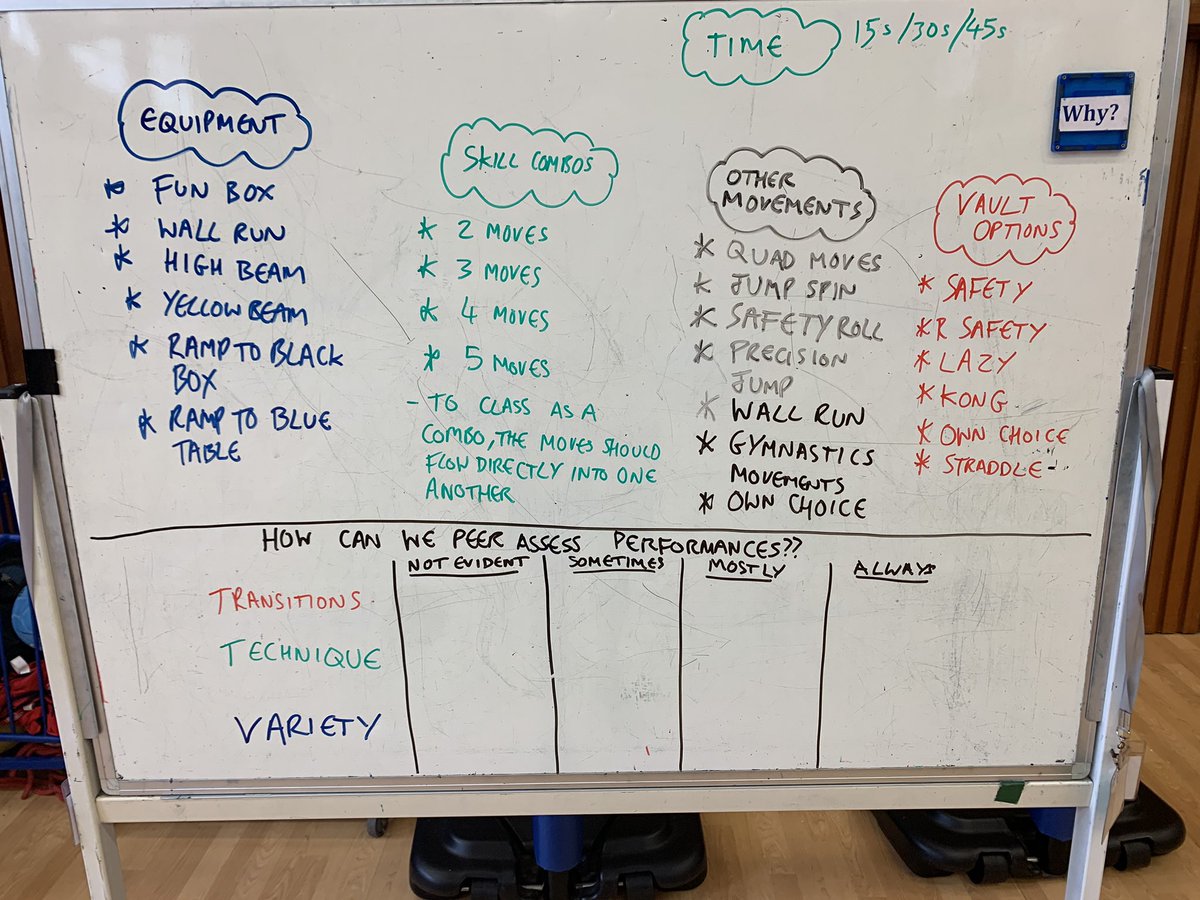 TIME 15s/30s/45s
Why?
EQUIPMENT
* FUN BOX
* WALL RUN
* HIGH BEAM
* YELLOW BEAM
* RAMP TO BLACK
BOX
* RAMP TO BLUE
TABLE
SKILL COMBOS
* 2 MOVES
* 3 MOVES
* 4 MOVES
* 5 MOVES
- TO CLASS AS A
COMBO, THE MOVES SHOULD
FLOW DIRECTLY INTO ONE
ANOTHER
OTHER
MOVEMENTS
* QUAD MOVES
* JUMP SPIN
* SAFETY ROLL
* PRECISION
JUMP
* WALL RUN
* GYMNASTICS
MOVEMENTS
* OWN CHOICE
VAULT
OPTIONS
* SAFETY
* R SAFETY
* LAZY
* KONG
* OWN CHOICE
* STRADDLE
HOW CAN WE PEER ASSESS PERFORMANCES??
NOT EVIDENT SOMETIMES MOSTLY ALWAYS
TRANSITIONS
TECHNIQUE
VARIETY